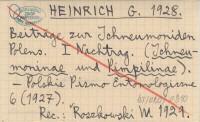 HEINRICH G. 1928.
Beiträge zur Ichneumoniden
Polens. I Nachtrag. (Ichneu-
moninae und Pimplinae).
– Polskie Pismo Entomologiczne
6 (1927).
Rec.: Roszkowski M. 1929.